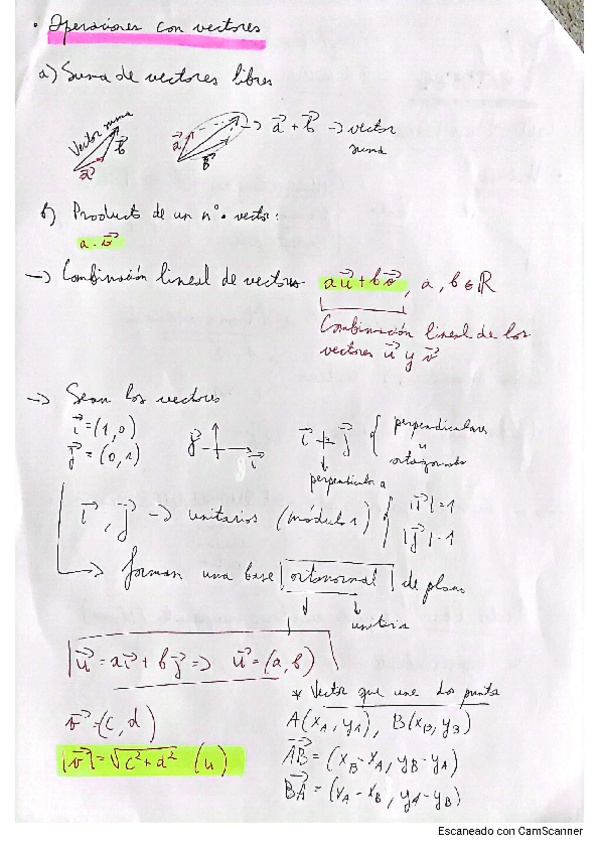 • Operaciones con vectores
a) Suma de vectores libres
Vector suma
a⃗ b⃗
a⃗ b⃗ → a⃗ + b⃗ → vector suma
b) Producto de un nº • vector:
a · v⃗
→ Combinación lineal de vectores. au⃗ + bv⃗, a, b ∈ ℝ
Combinación lineal de los
vectores u⃗ y v⃗
→ Sean los vectores
i⃗ = (1,0)
j⃗ = (0,1)
j⃗ i⃗
i⃗ ⊥ j⃗ { perpendiculares
u
ortogonales
perpendicular a
i⃗, j⃗ → unitarios (módulo 1) { |i⃗| = 1
|j⃗| = 1
→ forman una base ortonormal de plano
unitario
u⃗ = ai⃗ + bj⃗ => u⃗ = (a, b)
* Vector que une dos puntos
v⃗ = (c, d)
A(xA, yA), B(xB, yB)
|v⃗| = √c²+d² (u)
AB⃗ = (xB - xA, yB - yA)
BA⃗ = (xA - xB, yA - yB)
Escaneado con CamScanner